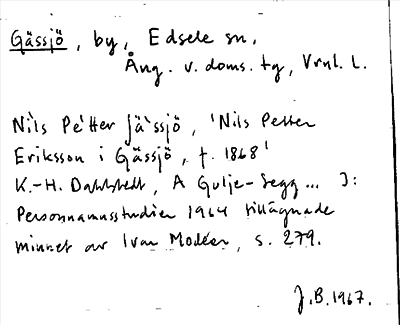 Gässjö, by, Edsele sn.
Ång. v. doms. tg, Vrnl. L.
Nìls Pe`tter jä`ssjö, 'Nils Petter
Eriksson i Gässjö, f. 1868'
K.-H. Dahlstedt, A Gulje-Segg... I:
Personnamnsstudier 1964 tillägnade
minnet av Ivar Modéer, s. 279.
J.B. 1967.